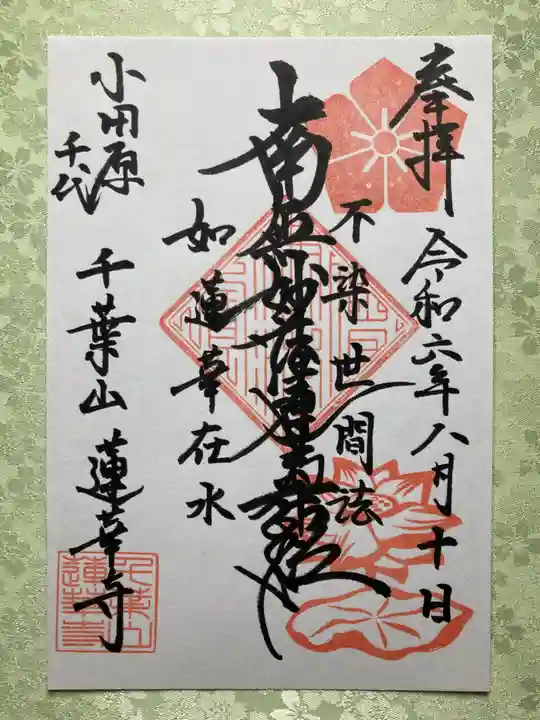 奉拝
令和六年八月十日
不染世間法
南無妙法蓮華経
如蓮華在水
小田原
千代
千葉山 蓮華寺